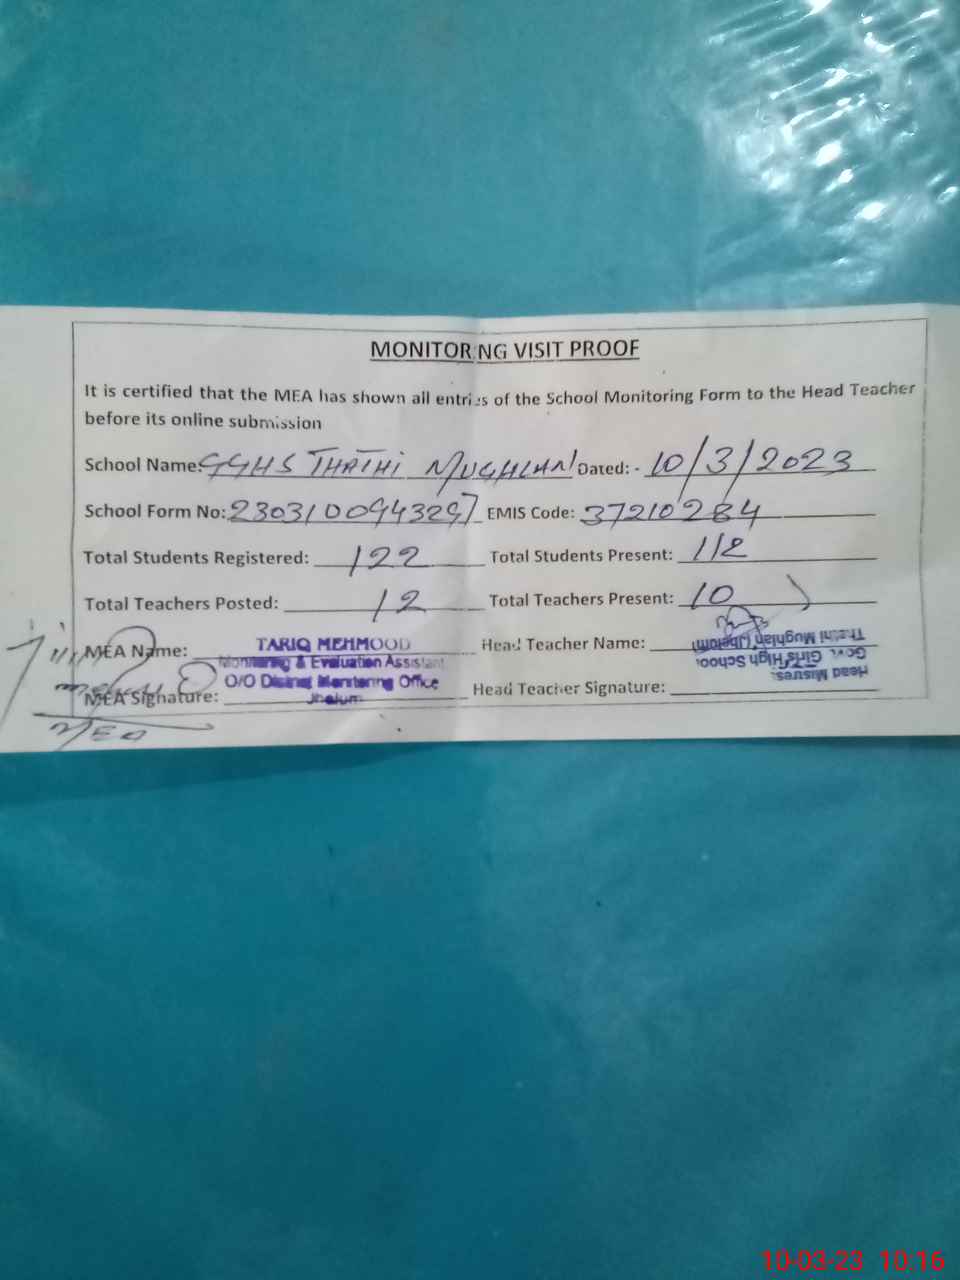 MONITORING VISIT PROOF
It is certified that the MEA has shown all entries of the School Monitoring Form to the Head Teacher
before its online submission
School Name: GGHS THATHI MUGHLAN Dated: - 10/3/2023
School Form No: 230310094329 EMIS Code: 37210284
Total Students Registered: 122 Total Students Present: 112
Total Teachers Posted: 12 Total Teachers Present: 10
MEA Name: TARIQ MEHMOOD Head Teacher Name:
Monitoring & Evaluation Assistant
O/O District Monitoring Office
Jhelum
MEA Signature: Head Teacher Signature:
Head Mistress
Govt. Girls High School
Thathi Mughlan (Jhelum)
MEA
10-03-23 10:16